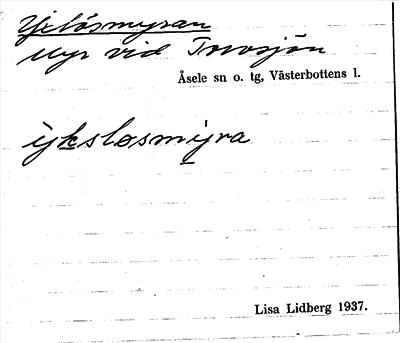 Yxlösmyran
Myr vid Torvsjön
Åsele sn o. tg, Västerbottens l.
ỳkslosmýra
Lisa Lidberg 1937.